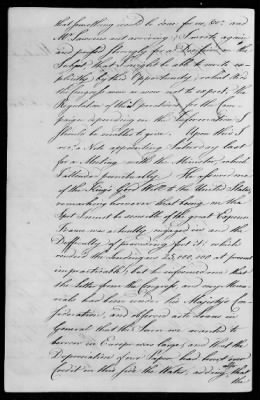 that something would be done for us, &c: and
Mr Laurens not arriving, I wrote again
and pressed strongly for a Decision on the
Subject, that I might be able to write ex-
plicitly by this Opportunity, what Aid
the Congress were or were not to expect, the
Regulation of their Operations for the Cam-
paign depending on the Information I
should be enabled to give. Upon this I
rec'd a Note appointing Saturday last
for a Meeting with the Minister, which
I attended punctually. He assured me
of the King's Good Will to the United States,
remarking however that being on the
Spot I must be sensible of the great Expence
France was actually engaged in and the
Difficulty of providing for it; which
rendered the Lending us 25,000,000 at present
impracticable; but he informed me that
the Letter from the Congress and my Memo-
rials had been under his Majesty's Con-
sideration, and observed as to Loans in
General that the Sum we wanted to
borrow in Europe was large, and that the
Depreciation of our Paper had hurt our
Credit on this side the Water, adding, also that
the